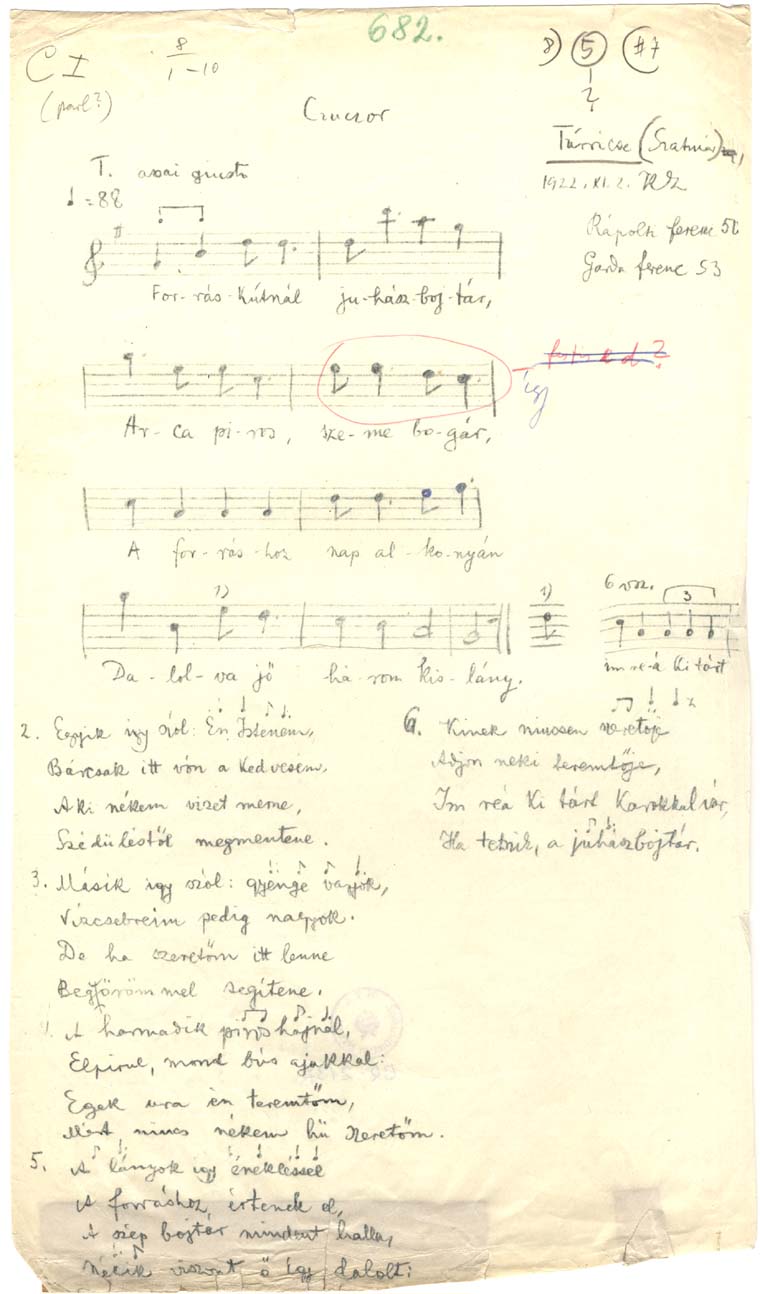 682.
C I
8
1-10
8) 5 (#7
?
(parl?)
Czuczor
Túrricse (Szatmár),
1922. XI. 2. KZ
T. assai giusto
♩ = 88
Rápolti ferenc 51
Garda ferenc 53
For-rás-kútnál ju-hász-boj-tár,
így
Ar-ca pi-ros, sze-me bo-gár,
A for-rás-hoz nap al-ko-nyán
1) 1) 6 vsz. 3
Da-lol-va jő há-rom kis-lány.
im re-á Ki tárt
2. Egyik így szól: Én Istenem,
Bárcsak itt vón a Kedvesem,
A ki nékem vizet merne,
Szédüléstől megmentene.
3. Másik így szól: gyenge vagyok,
Vízcsebreim pedig nagyok.
De ha szeretőm itt lenne
örömmel segítene.
A harmadik piros hajnál,
Elpirul, mond bús ajakkal:
Egek ura én teremtőm,
Mért nincs nékem hű szeretőm.
5. A lányok így énekléssel
A forráshoz értenek el,
A szép bojtár mindent halla,
Nékik viszont ő így dalolt:
6. Kinek nincsen szeretője
Adjon neki teremtője,
Im reá Ki tárt Karokkal vár,
Ha tetszik, a juhászbojtár.